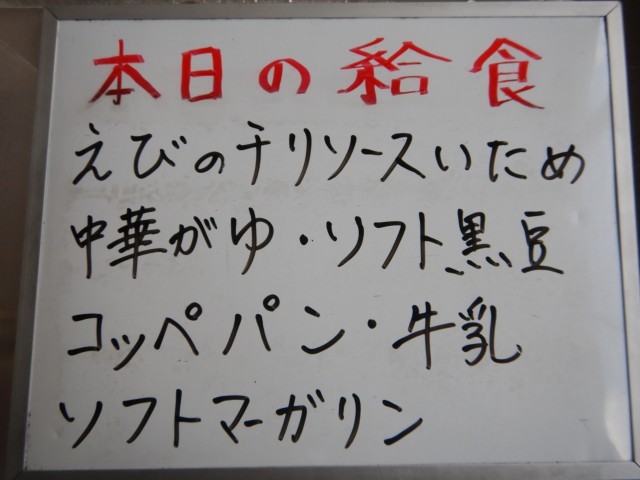 本日の給食
えびのチリソースいため
中華がゆ・ソフト黒豆
コッペパン・牛乳
ソフトマーガリン